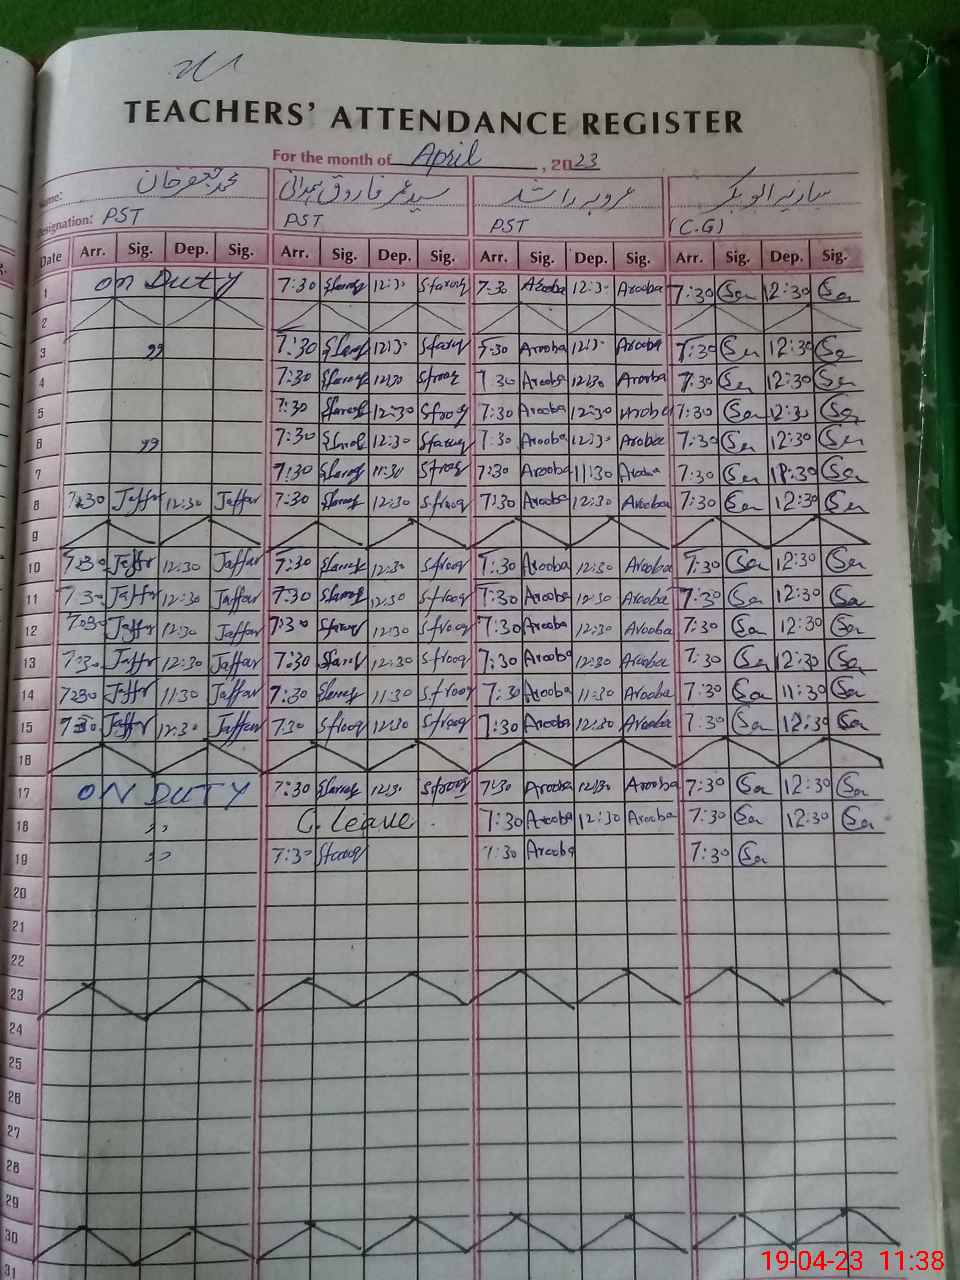 TEACHERS' ATTENDANCE REGISTER
For the month of April, 2023
Name: محمد جعفر خان سید عمر فاروق ہمدانی عروبہ راشد سازیہ ابوبکر
Designation: PST PST PST (C.G)
Date Arr. Sig. Dep. Sig. Arr. Sig. Dep. Sig. Arr. Sig. Dep. Sig. Arr. Sig. Dep. Sig.
1 On Duty 7:30 Sfarooq 12:30 Sfarooq 7:30 Arooba 12:30 Arooba 7:30 Sa 12:30 Sa
2
3 " 7:30 Sfarooq 12:30 Sfarooq 7:30 Arooba 12:30 Arooba 7:30 Sa 12:30 Sa
4 7:30 Sfarooq 12:30 Sfrooq 7:30 Arooba 12:30 Arooba 7:30 Sa 12:30 Sa
5 7:30 Sfarooq 12:30 Sfrooq 7:30 Arooba 12:30 Arooba 7:30 Sa 12:30 Sa
6 " 7:30 Sfarooq 12:30 Sfarooq 7:30 Arooba 12:30 Arooba 7:30 Sa 12:30 Sa
7 7:30 Sfarooq 11:30 Sfrooq 7:30 Arooba 11:30 Arooba 7:30 Sa 11:30 Sa
8 7:30 Jaffar 12:30 Jaffar 7:30 Sfarooq 12:30 Sfrooq 7:30 Arooba 12:30 Arooba 7:30 Sa 12:30 Sa
9
10 7:30 Jaffar 12:30 Jaffar 7:30 Sfarooq 12:30 Sfrooq 7:30 Arooba 12:30 Arooba 7:30 Sa 12:30 Sa
11 7:30 Jaffar 12:30 Jaffar 7:30 Sfarooq 12:30 Sfrooq 7:30 Arooba 12:30 Arooba 7:30 Sa 12:30 Sa
12 7:30 Jaffar 12:30 Jaffar 7:30 Sfarooq 12:30 Sfrooq 7:30 Arooba 12:30 Arooba 7:30 Sa 12:30 Sa
13 7:30 Jaffar 12:30 Jaffar 7:30 Sfarooq 12:30 Sfrooq 7:30 Arooba 12:30 Arooba 7:30 Sa 12:30 Sa
14 7:30 Jaffar 11:30 Jaffar 7:30 Sfarooq 11:30 Sfrooq 7:30 Arooba 11:30 Arooba 7:30 Sa 11:30 Sa
15 7:30 Jaffar 12:30 Jaffar 7:30 Sfrooq 12:30 Sfrooq 7:30 Arooba 12:30 Arooba 7:30 Sa 12:30 Sa
16
17 ON DUTY 7:30 Sfarooq 12:30 Sfrooq 7:30 Arooba 12:30 Arooba 7:30 Sa 12:30 Sa
18 " C. leave . 7:30 Arooba 12:30 Arooba 7:30 Sa 12:30 Sa
19 " 7:30 Sfarooq 7:30 Arooba 7:30 Sa
20
21
22
23
24
25
26
27
28
29
30
31
19-04-23 11:38